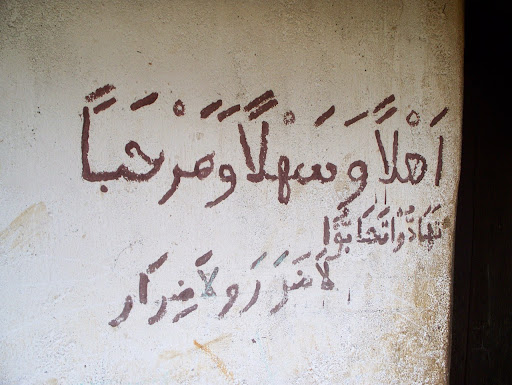 اَهْلاً وَسَهْلاً وَمَرْحَباً
تَهَادُّوْا تَحَابُّوا
لَا ضَرَرَ وَلَا ضِرَار